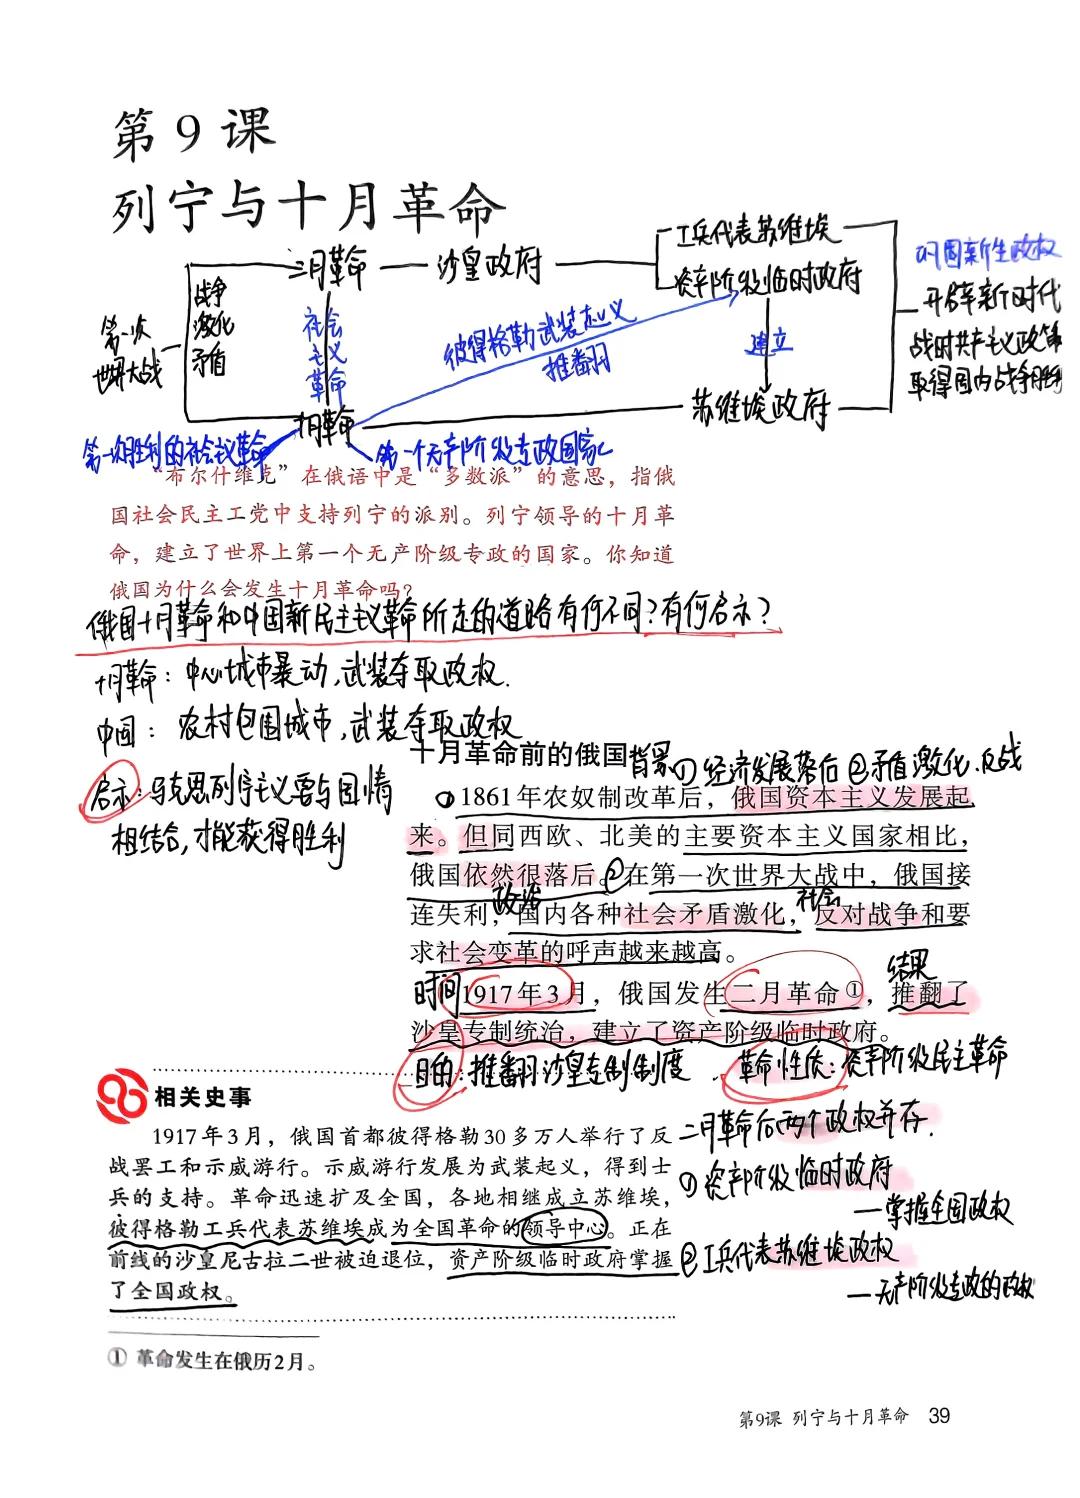 第9课
列宁与十月革命
二月革命
沙皇政府
工兵代表苏维埃
资产阶级临时政府
巩固新生政权
开辟新时代
战时共产主义政策
取得国内战争胜利
第一次
世界大战
战争
激化
矛盾
社会
主义
革命
彼得格勒武装起义
推翻
建立
苏维埃政府
十月革命
第一次胜利的社会主义革命
第一个无产阶级专政国家
“布尔什维克”在俄语中是“多数派”的意思，指俄
国社会民主工党中支持列宁的派别。列宁领导的十月革
命，建立了世界上第一个无产阶级专政的国家。你知道
俄国为什么会发生十月革命吗？
俄国十月革命和中国新民主主义革命所走的道路有何不同？有何启示？
十月革命：中心城市暴动，武装夺取政权.
中国：农村包围城市，武装夺取政权
启示：马克思列宁主义要与国情
相结合，才能获得胜利
十月革命前的俄国 背景 ①经济发展落后 ②矛盾激化.反战
① 1861年农奴制改革后，俄国资本主义发展起
来。但同西欧、北美的主要资本主义国家相比，
俄国依然很落后。②在第一次世界大战中，俄国接
政治
社会
连失利，国内各种社会矛盾激化，反对战争和要
求社会变革的呼声越来越高。
结果
时间 1917年3月，俄国发生二月革命①，推翻了
沙皇专制统治，建立了资产阶级临时政府。
目的：推翻沙皇专制制度. 革命性质：资产阶级民主革命
相关史事
1917年3月，俄国首都彼得格勒30多万人举行了反
战罢工和示威游行。示威游行发展为武装起义，得到士
兵的支持。革命迅速扩及全国，各地相继成立苏维埃，
彼得格勒工兵代表苏维埃成为全国革命的领导中心。正在
前线的沙皇尼古拉二世被迫退位，资产阶级临时政府掌握
了全国政权。
二月革命后两个政权并存.
①资产阶级临时政府
—掌握全国政权
②工兵代表苏维埃政权
—无产阶级专政的政权
① 革命发生在俄历2月。
第9课 列宁与十月革命 39